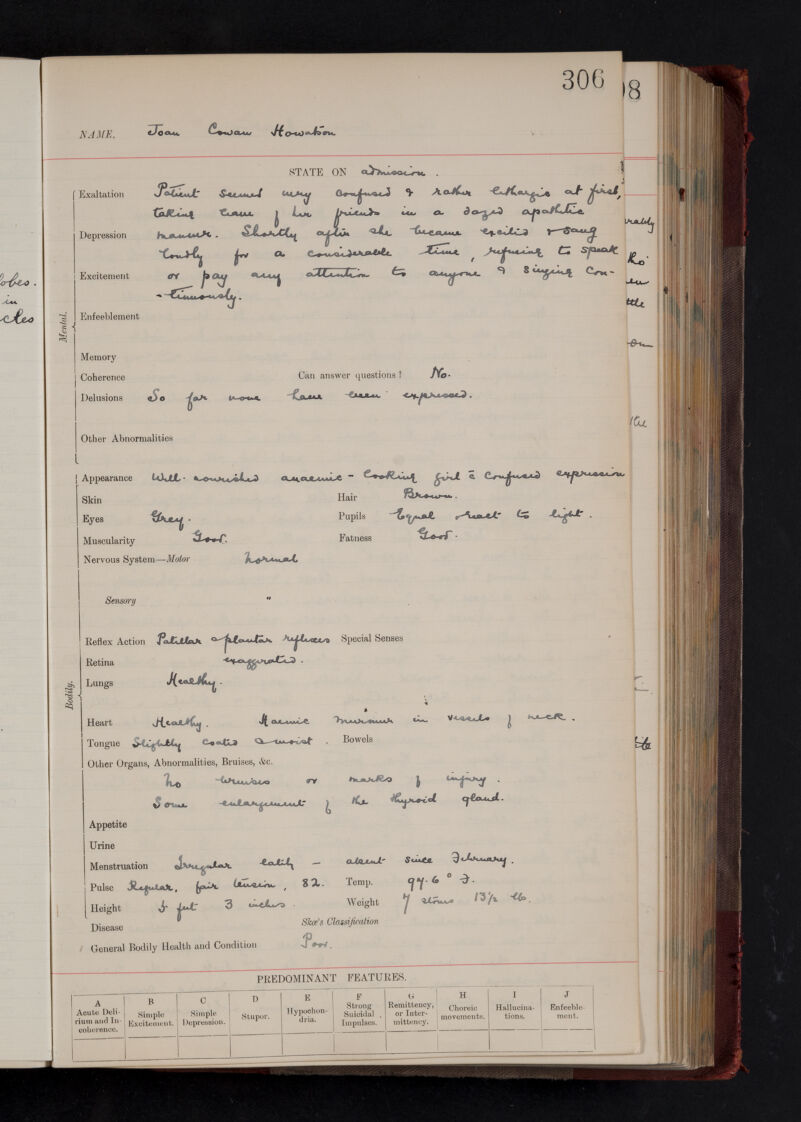 306
8
NAME. Joan Cowan Howatson
STATE ON admission.
Exaltation Patient seemed very confused & rather lethargic at first,
taking leave of her friends in a dazed apathetic
Depression manner. Shortly after she became excited & sang
loudly for a considerable time, refusing to speak
Excitement or pay any attention to anyone & singing con-
-tinuously.
Enfeeblement
Mental.
Memory
Coherence Can answer questions? No.
Delusions So far none have been expressed.
Other Abnormalities
Appearance Well-nourished anaemic-looking girl c̄ confused expression
Skin Hair Brown.
Eyes Grey. Pupils Equal react to light.
Muscularity Good. Fatness Good.
Nervous System—Motor Normal
Sensory "
Reflex Action Patellar & plantar reflexes Special Senses
Retina exaggerated.
Bodily.
Lungs Healthy.
Heart Healthy. Haemic murmur in vessels of neck.
Tongue Slightly coated & moist. Bowels
Other Organs, Abnormalities, Bruises, &c.
No bruises or marks of injury.
Some enlargement of the thyroid gland.
Appetite
Urine
Menstruation Irregular lately — absent since February.
Pulse Regular, fair tension, 82. Temp. 97.6° F.
Height 5 feet 3 inches. Weight 7 stones 13½ lb.
Disease Skae's Classification
General Bodily Health and Condition Poor.
PREDOMINANT FEATURES.
A B C D E F G H I J
Acute Delirium and Incoherence. Simple Excitement. Simple Depression. Stupor. Hypochondria. Strong Suicidal Impulses. Remittency, or Intermittency. Choreic movements. Hallucinations. Enfeeblement.